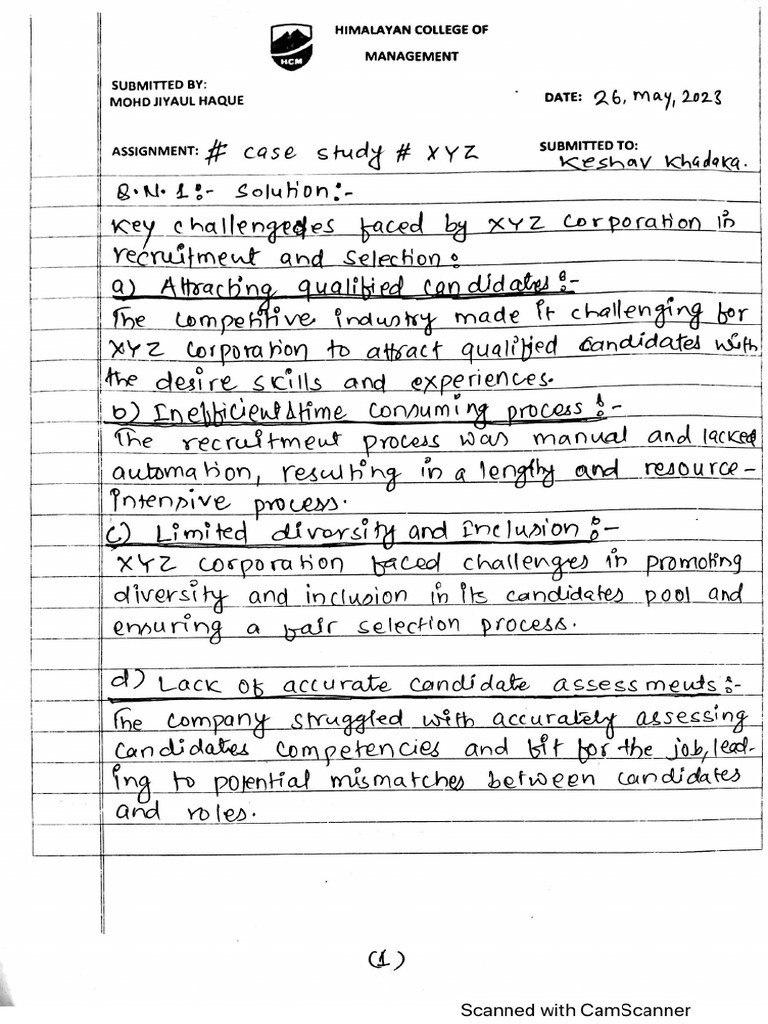 HIMALAYAN COLLEGE OF
MANAGEMENT
HCM
SUBMITTED BY:
MOHD JIYAUL HAQUE
DATE: 26, May, 2023
ASSIGNMENT: # case study # XYZ
SUBMITTED TO:
Keshav Khadaka.
Q.N.1:- Solution:-
Key challengedes faced by XYZ corporation in
recruitment and selection:
a) Attracting qualified candidates:-
The competitive industry made it challenging for
XYZ corporation to attract qualified candidates with
the desire skills and experiences.
b) Inefficient & time consuming process:-
The recruitment process was manual and lacked
automation, resulting in a lengthy and resource-
intensive process.
c) Limited diversity and Inclusion:-
XYZ corporation faced challenges in promoting
diversity and inclusion in its candidates pool and
ensuring a fair selection process.
d) Lack of accurate candidate assessments:-
The company struggled with accurately assessing
candidates competencies and fit for the job, lead-
ing to potential mismatches between candidates
and roles.
(1)
Scanned with CamScanner